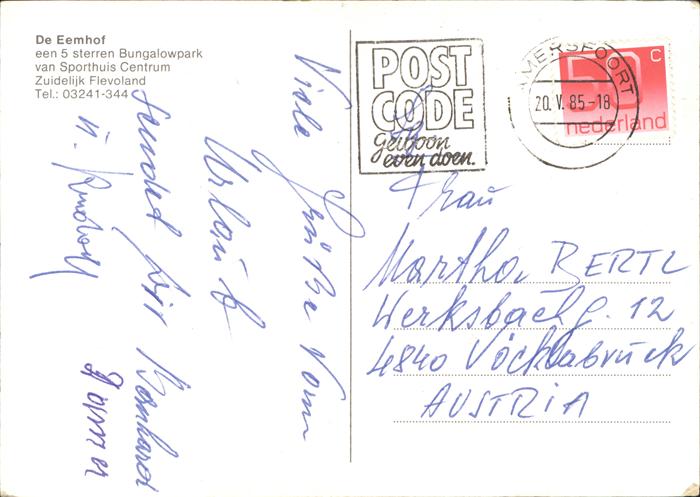 De Eemhof
een 5 sterren Bungalowpark
van Sporthuis Centrum
Zuidelijk Flevoland
Tel.: 03241-344
Viele Grüße vom
Urlaub
sendet
u. Rudolf
POST
CODE
Gewoon
even doen.
AMERSFOORT
20.V.85-18
50 C
nederland
Frau
Martha BERTL
Werksbachg. 12
4840 Vöcklabruck
AUSTRIA